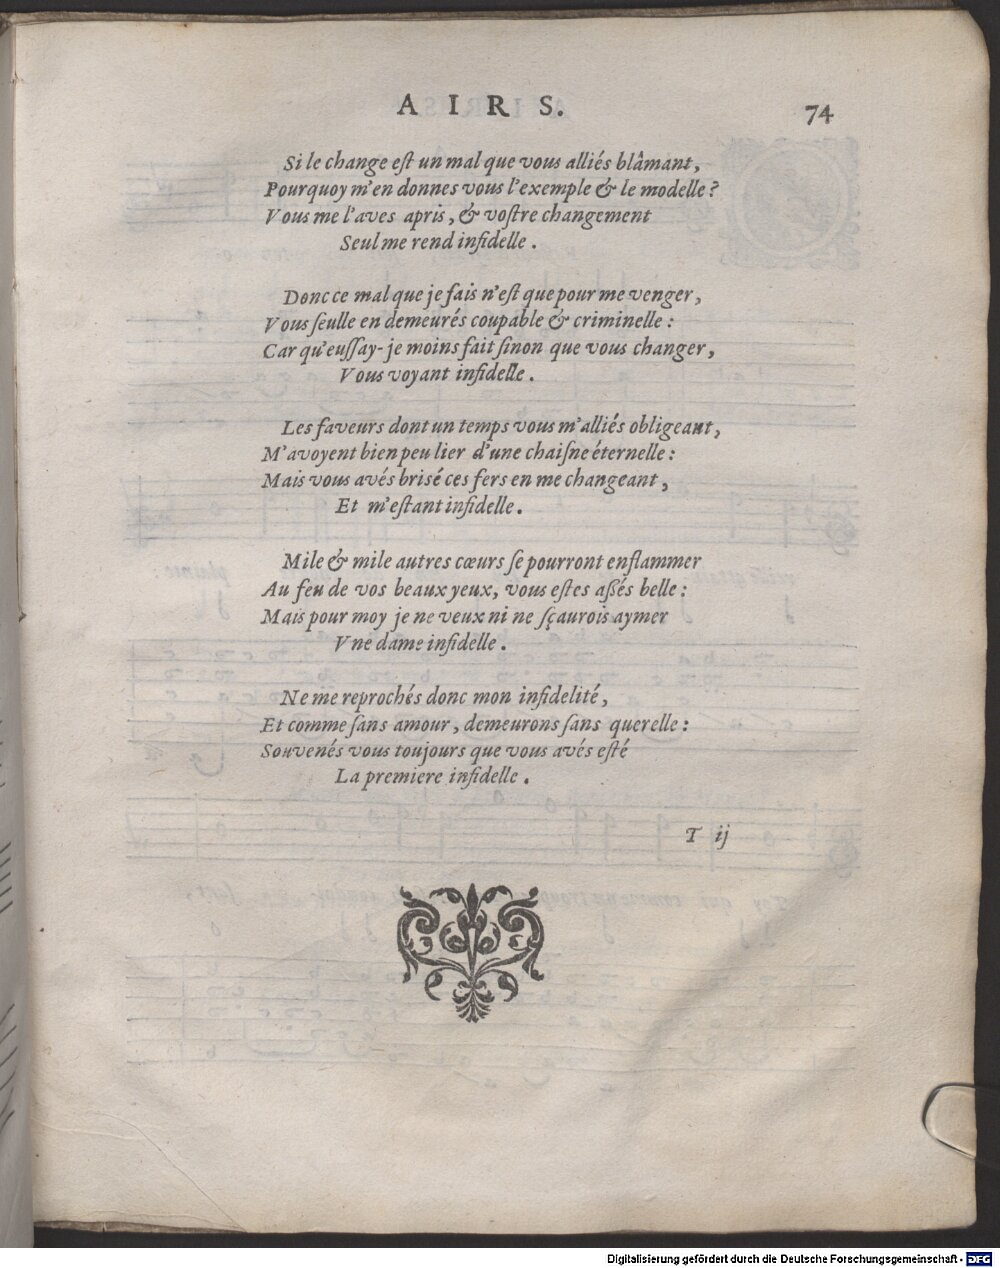 AIRS.
74
Si le change eſt un mal que vous alliés blâmant,
Pourquoy m'en donnes vous l'exemple & le modelle?
Vous me l'aves apris, & voſtre changement
Seul me rend infidelle.
Donc ce mal que je fais n'eſt que pour me venger,
Vous ſeulle en demeurés coupable & criminelle:
Car qu'euſſay-je moins fait ſinon que vous changer,
Vous voyant infidelle.
Les faveurs dont un temps vous m'alliés obligeant,
M'avoyent bien peu lier d'une chaiſne éternelle:
Mais vous avés brisé ces fers en me changeant,
Et m'eſtant infidelle.
Mile & mile autres cœurs ſe pourront enflammer
Au feu de vos beaux yeux, vous eſtes aſſés belle:
Mais pour moy je ne veux ni ne ſçaurois aymer
Vne dame infidelle.
Ne me reprochés donc mon infidelité,
Et comme ſans amour, demeurons ſans querelle:
Souvenés vous toujours que vous avés eſté
La premiere infidelle.
T ij
Digitalisierung gefördert durch die Deutsche Forschungsgemeinschaft - DFG